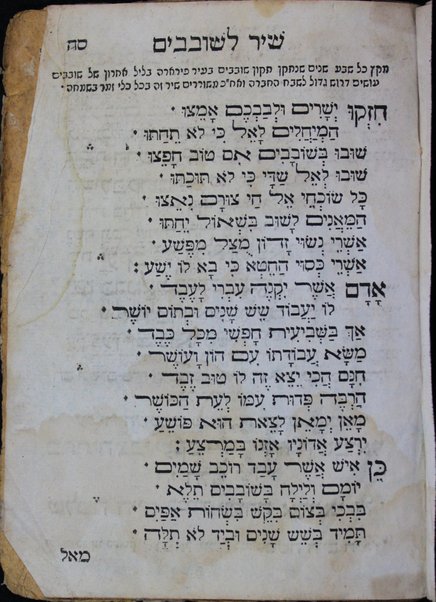 שיר לשובבים סה
מקץ כל שבע שנים שנתקן תקון שובבים בעיר פירארה בליל אחרון של שובבים
עושים דרוש גדול לשבח החברה ואח״כ משוררים שיר זה בכל כלי זמר בשמחה ׃
חִזְקוּ יְשָׁרִים וּלְבַבְכֶם אַמְּצוּ ·
הַמְיַחֲלִים לָאֵל כִּי לֹא תֵחַתּוּ ·
שׁוּבוּ בְּשׁוֹבָבִים אִם טוֹב חָפְצוּ ·
שׁוּבוּ לְאֵל שַׁדַּי כִּי לֹא תִוָּכָתוּ ·
כָּל שׁוֹכְחֵי אֵל חַי צוּרָם נִאֲצוּ ·
הַמְּאֲנִים לָשׁוּב בִּשְׁאוֹל יֵחַתּוּ ·
אַשְׁרֵי נְשׂוּי זָדוֹן מֻצַּל מִפֶּשַׁע ·
אַשְׁרֵי כְּסוּי הַחֵטְא כִּי בָא לוֹ יֶשַׁע ׃
אָדָם אֲשֶׁר יִקְנֶה עִבְרִי לָעֶבֶד ·
לוֹ יַעֲבוֹד שֵׁשׁ שָׁנִים וּבְתוֹם יוֹשֶׁר ·
אַךְ בַּשְּׁבִיעִית חָפְשִׁי מִכָּל כֶּבֶד ·
מַשָּׂא עֲבוֹדָתוֹ עִם הוֹן וָעוֹשֶׁר ·
חִנָּם הֲכִי יֵצֵא זֶה לוֹ טוּב זֶבֶד ·
הַרְבֵּה פְּדוּת עִמּוֹ לְעֵת הַכּוֹשֶׁר ·
מָאֵן יְמָאֵן לָצֵאת הוּא פּוֹשֵׁעַ ·
יִרְצַע אֲדוֹנָיו אָזְנוֹ בַּמַּרְצֵעַ ׃
כֵּן אִישׁ אֲשֶׁר עָבַד רוֹכֵב שָׁמַיִם ·
יוֹמָם וְלַיְלָה בַּשׁוֹבָבִים תִּלֵּא ·
בִּבְכִי בְּצוֹם בִּקֵּשׁ בִּשְׁחוֹת אַפַּיִם ·
תָּמִיד בְּשֵׁשׁ שָׁנִים וּבְיַד לֹא תִלָּה ·
מאל